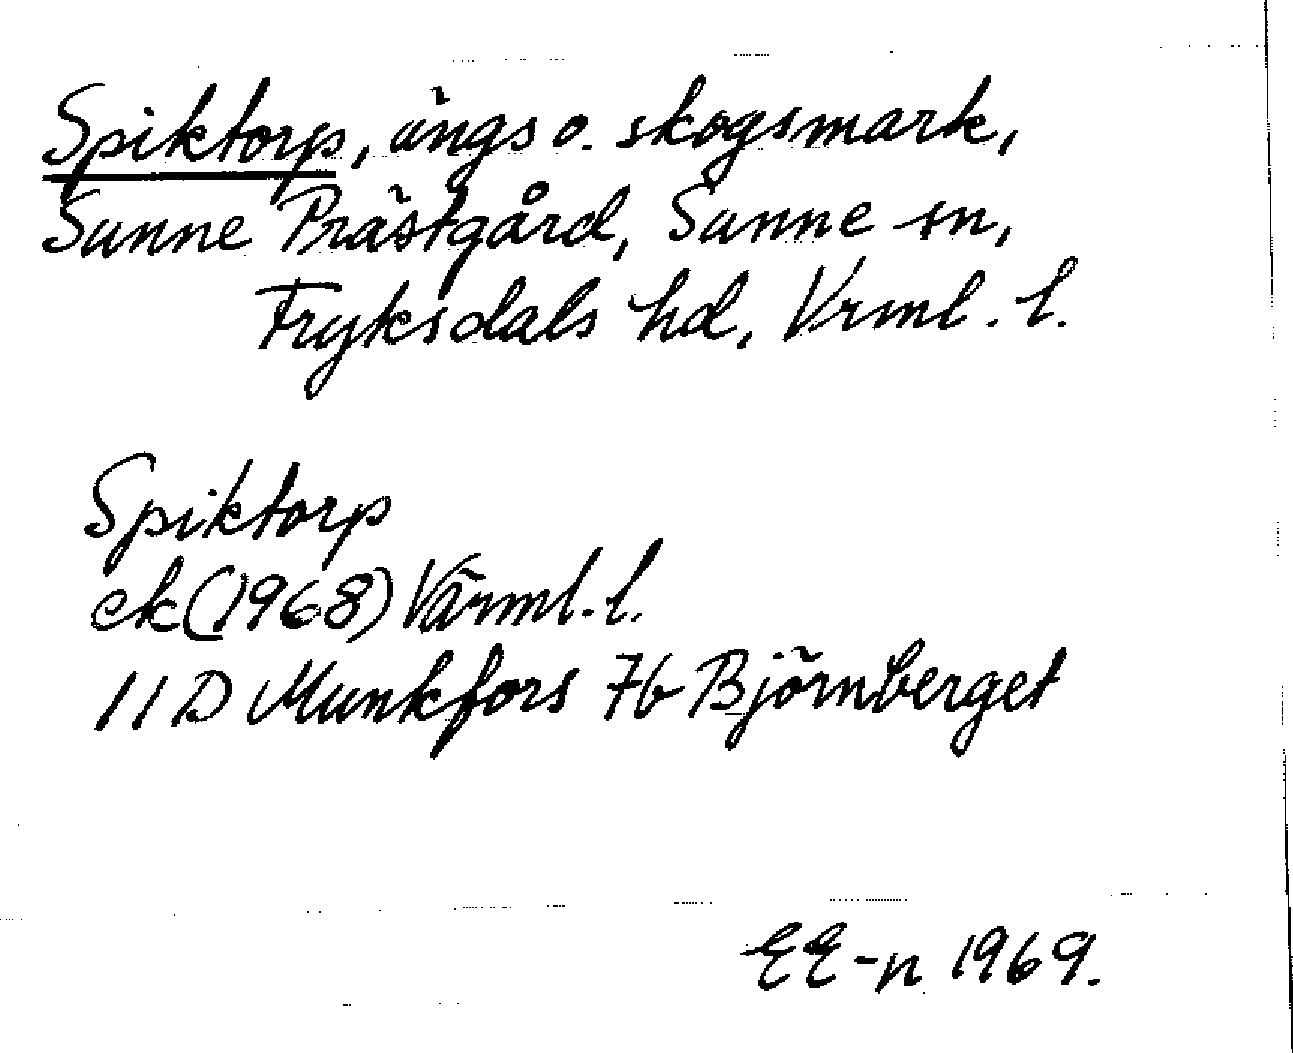 Spiktorp, ängs o. skogsmark,
Sunne Prästgård, Sunne sn,
Fryksdals hd, Vrml. l.
Spiktorp
ek (1968) Värml. l.
11 D Munkfors 7b Björnberget
EE-n 1969.